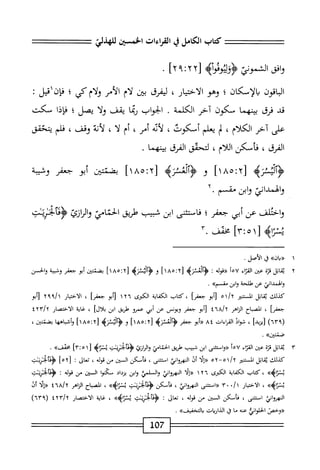 كتاب الكامل في القراءات الخمسين للهذليّ
وافق الشمونيّ ﴿وَلِيُوفُوا۟﴾ [٢٩:٢٢] .
الباقون بالإسكان ؛ وهو الاختيار ، ليفرق بين لام الأمر ولام كي ؛ فإن١ قيل :
قد فرق بينهما سكون آخر الكلمة . الجواب ربّما يقف ولا يصل ؛ فإذا سكت
على آخر الكلام ، لم يعلم أسكوتٌ ، لأنّه أمر ، أم لا ، لأنّه وقف ، فلم يتحقّق
الفرق ، فأسكن اللام ، لتحقّق الفرق بينهما .
﴿ٱلْيُسُرَ﴾ [١٨٥:٢] و ﴿ٱلْعُسُرَ﴾ [١٨٥:٢] بضمّتين أبو جعفر وشيبة
والهمدانيّ وابن مقسم .٢
واختُلف عن أبي جعفر ؛ فاستثنى ابن شبيب طريق الحمّاميّ والرازيّ ﴿فَٱلْجَٰرِيَٰتِ
يُسْرًا﴾ [٣:٥١] مخفّف .٣
١ «بان» في الأصل .
٢ يُقابل قرّة عين القرّاء ٥٧أ «قوله : ﴿ٱلْعُسُرَ﴾ [١٨٥:٢] و ﴿ٱلْيُسُرَ﴾ [١٨٥:٢] بضمّتين أبو جعفر وشيبة والحسن
والهمدانيّ عن طلحة وابن مقسم» .
كذلك يُقابل المستنير ٥١/٢ [أبو جعفر] ، كتاب الكفاية الكبرى ١٢٦ [أبو جعفر] ، الاختيار ٢٩٩/١ [أبو
جعفر] ، المصباح الزاهر ٤٦٧/٢ [أبو جعفر ويونس عن أبي عمرو طريق ابن بلال] ، غاية الاختصار ٤٢٣/٢
(٦٣٩) [يزيد] ، شواذّ القراءات ٨٤ «أبو جعفر ﴿ٱلْعُسُرَ﴾ [١٨٥:٢] و ﴿ٱلْيُسُرَ﴾ [١٨٥:٢] وأشباهها بضمّتين ،
ضمّتين» .
٣ يُقابل قرّة عين القرّاء ٥٧أ «واستثنى ابن شبيب طريق الحمّاميّ والرازيّ ﴿فَٱلْجَٰرِيَٰتِ يُسْرًا﴾ [٣:٥١] مخفّف» .
كذلك يُقابل المستنير ٥١/٢-٥٢ «إلّا أنّ النهروانيّ استثنى ، فأسكن السين من قوله ، تعالى : [٥٢] ﴿فَٱلْجَٰرِيَٰتِ
يُسْرًا﴾» ، كتاب الكفاية الكبرى ١٢٦ «إلّا النهروانيّ والسلميّ وابن يزداد سكّنوا السين من قوله : ﴿فَٱلْجَٰرِيَٰتِ
يُسْرًا﴾» ، الاختيار ٣٠٠/١ «استثنى النهروانيّ ، فأسكن ﴿فَٱلْجَٰرِيَٰتِ يُسْرًا﴾» ، المصباح الزاهر ٤٦٨/٢ «إلّا أنّ
النهروانيّ استثنى ، فأسكن السين من قوله ، تعالى : ﴿فَٱلْجَٰرِيَٰتِ يُسْرًا﴾» ، غاية الاختصار ٤٢٣/٢ (٦٣٩)
«وخصّ الحلوانيّ عنه ما في الذاريات بالتخفيف» .
107